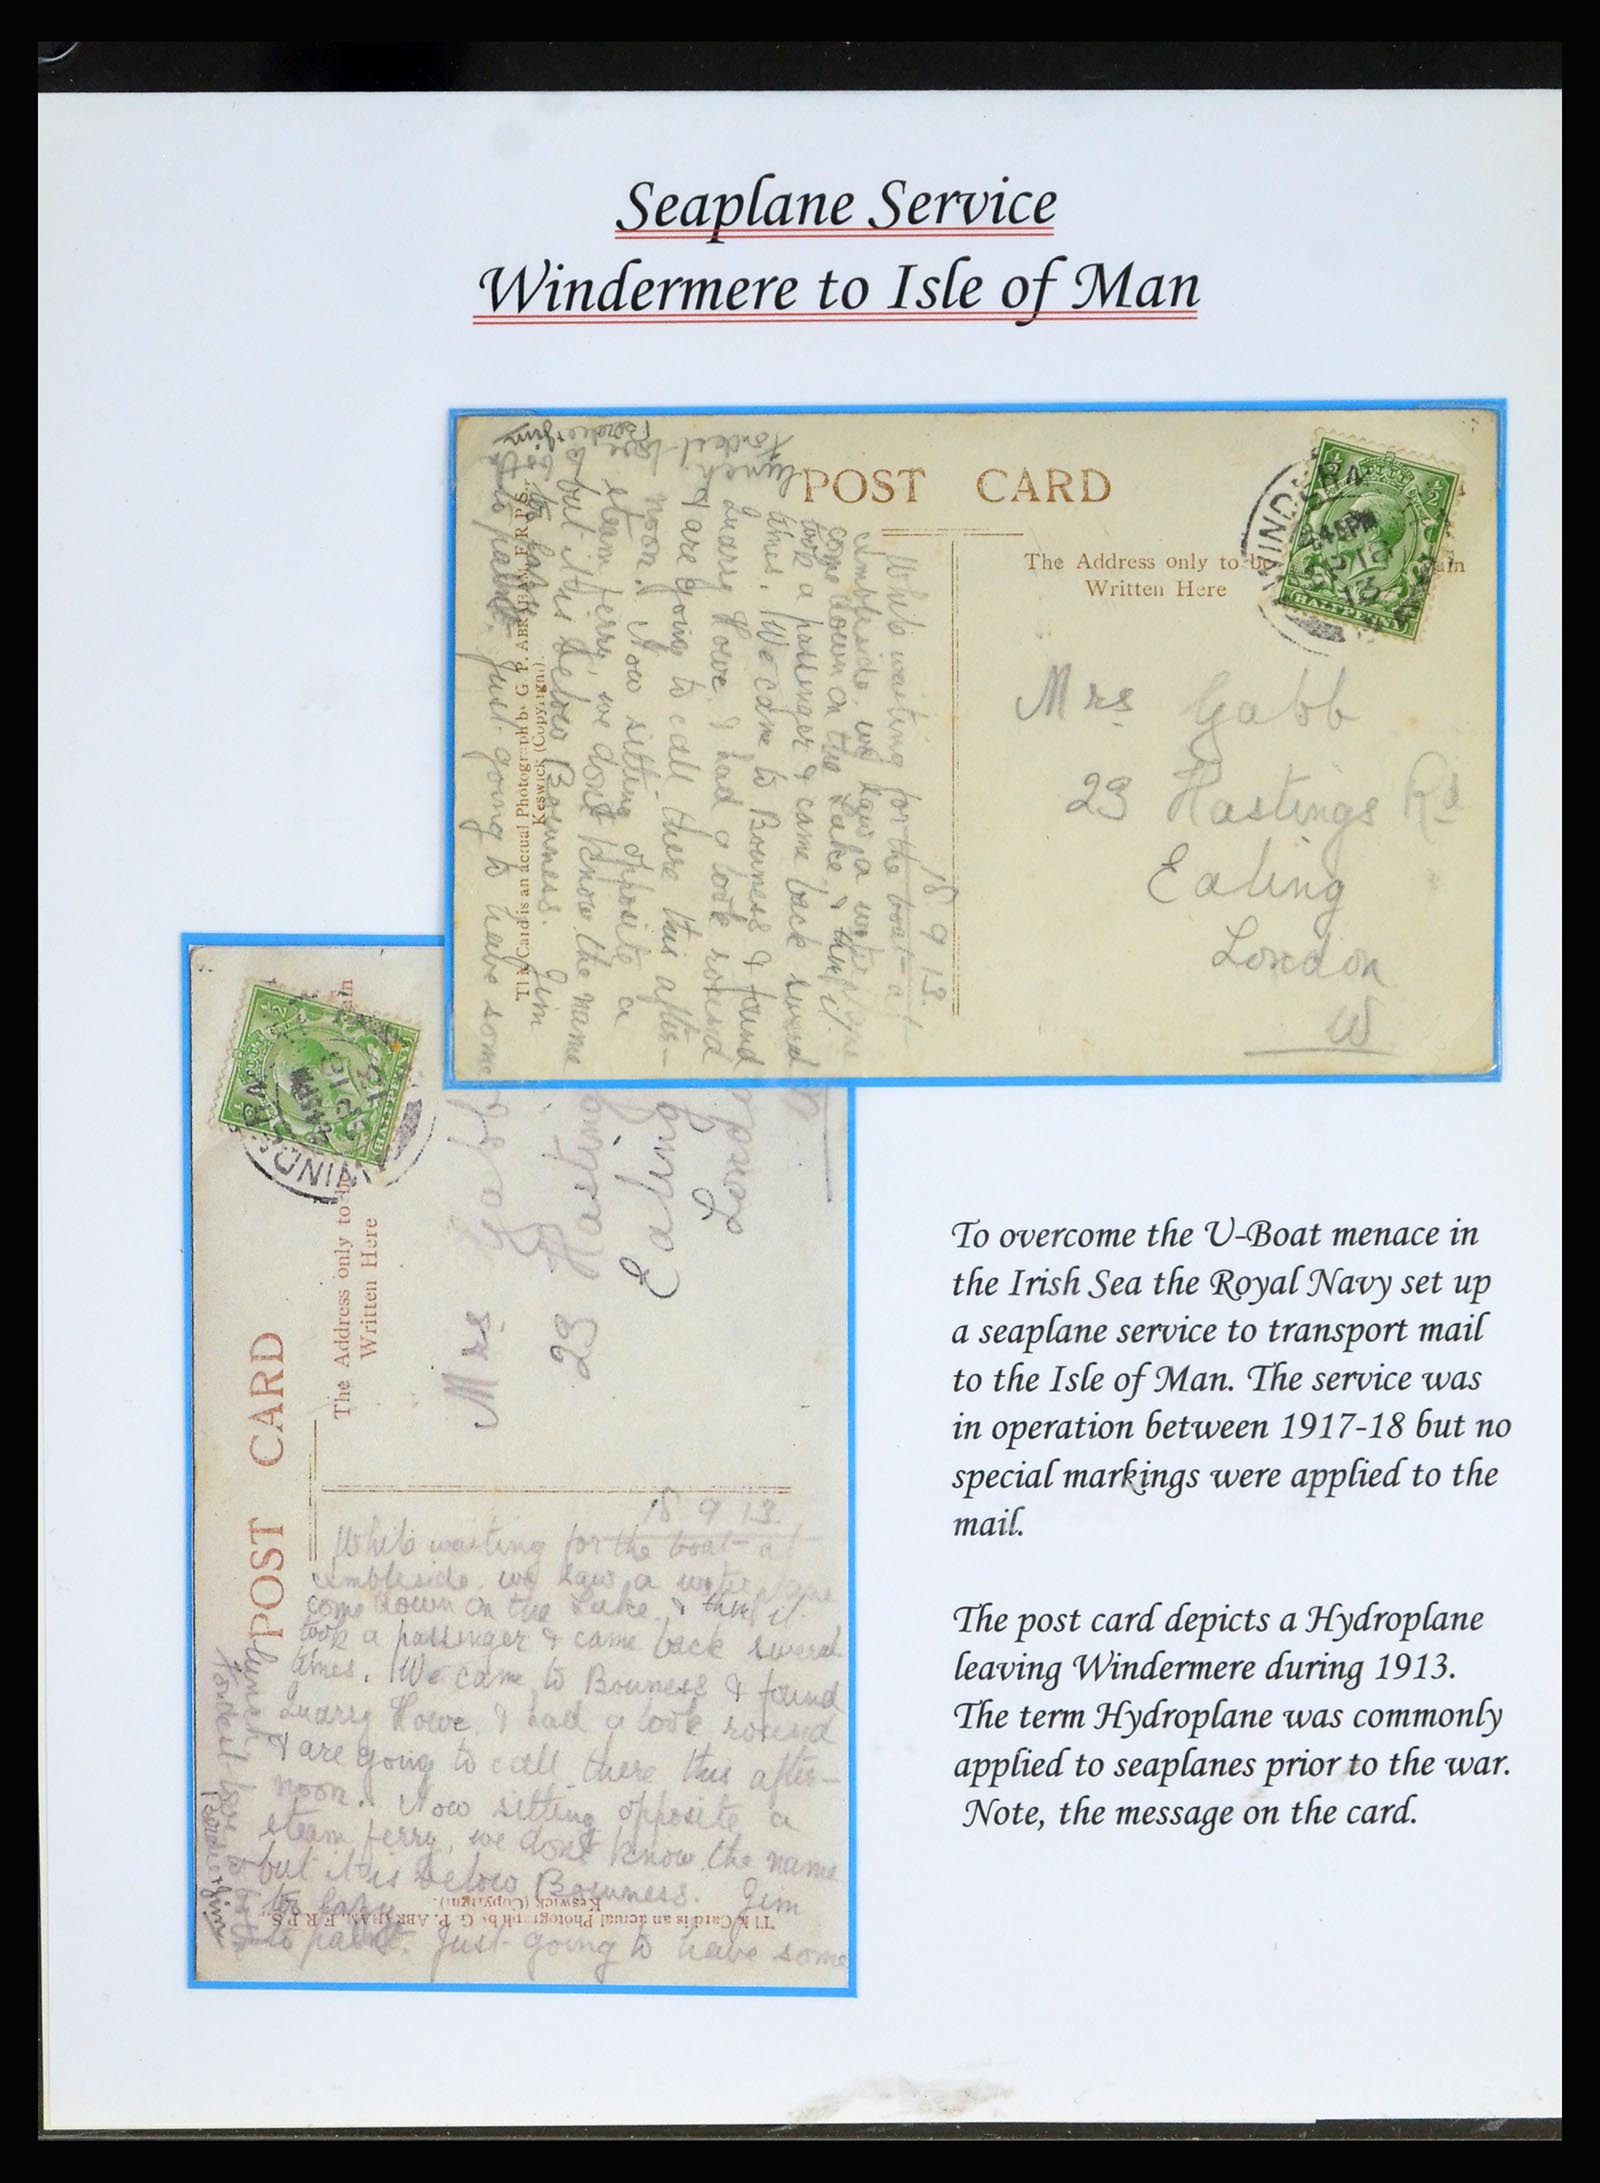 Seaplane Service
Windermere to Isle of Man
POST CARD
The Address only to be
Written Here
Mrs Gabb
23 Hastings Rd
Ealing
London
W
18 9 13.
While waiting for the boat at
Ambleside, we saw a water plane
come down on the Lake, & then it
took a passenger & came back several
times. We came to Bowness & found
Quarry Howe. I had a look round
& are going to call there this after-
noon. Now sitting opposite a
steam ferry, we dont know the name
but it is below Bowness. Jim
is too lazy
to paint. Just going to have some
lunch
Fondest love to both
Berdie & Jim
This Card is an actual Photograph by G. P. ABRAHAM, F.R.P.S.,
Keswick (Copyright).
HALFPENNY
POST CARD
The Address only to be
Written Here
Mrs Gabb
23 Hastings
Ealing
London
18 9 13.
While waiting for the boat at
Ambleside, we saw a water plane
come down on the Lake, & then it
took a passenger & came back several
times. We came to Bowness & found
Quarry Howe. I had a look round
& are going to call there this after-
noon. Now sitting opposite a
steam ferry, we dont know the name
but it is below Bowness. Jim
is too lazy
to paint. Just going to have some
lunch
Fondest love to both
Berdie & Jim
This Card is an actual Photograph by G. P. ABRAHAM, F.R.P.S.,
Keswick (Copyright).
HALFPENNY
To overcome the U-Boat menace in
the Irish Sea the Royal Navy set up
a seaplane service to transport mail
to the Isle of Man. The service was
in operation between 1917-18 but no
special markings were applied to the
mail.
The post card depicts a Hydroplane
leaving Windermere during 1913.
The term Hydroplane was commonly
applied to seaplanes prior to the war.
Note, the message on the card.